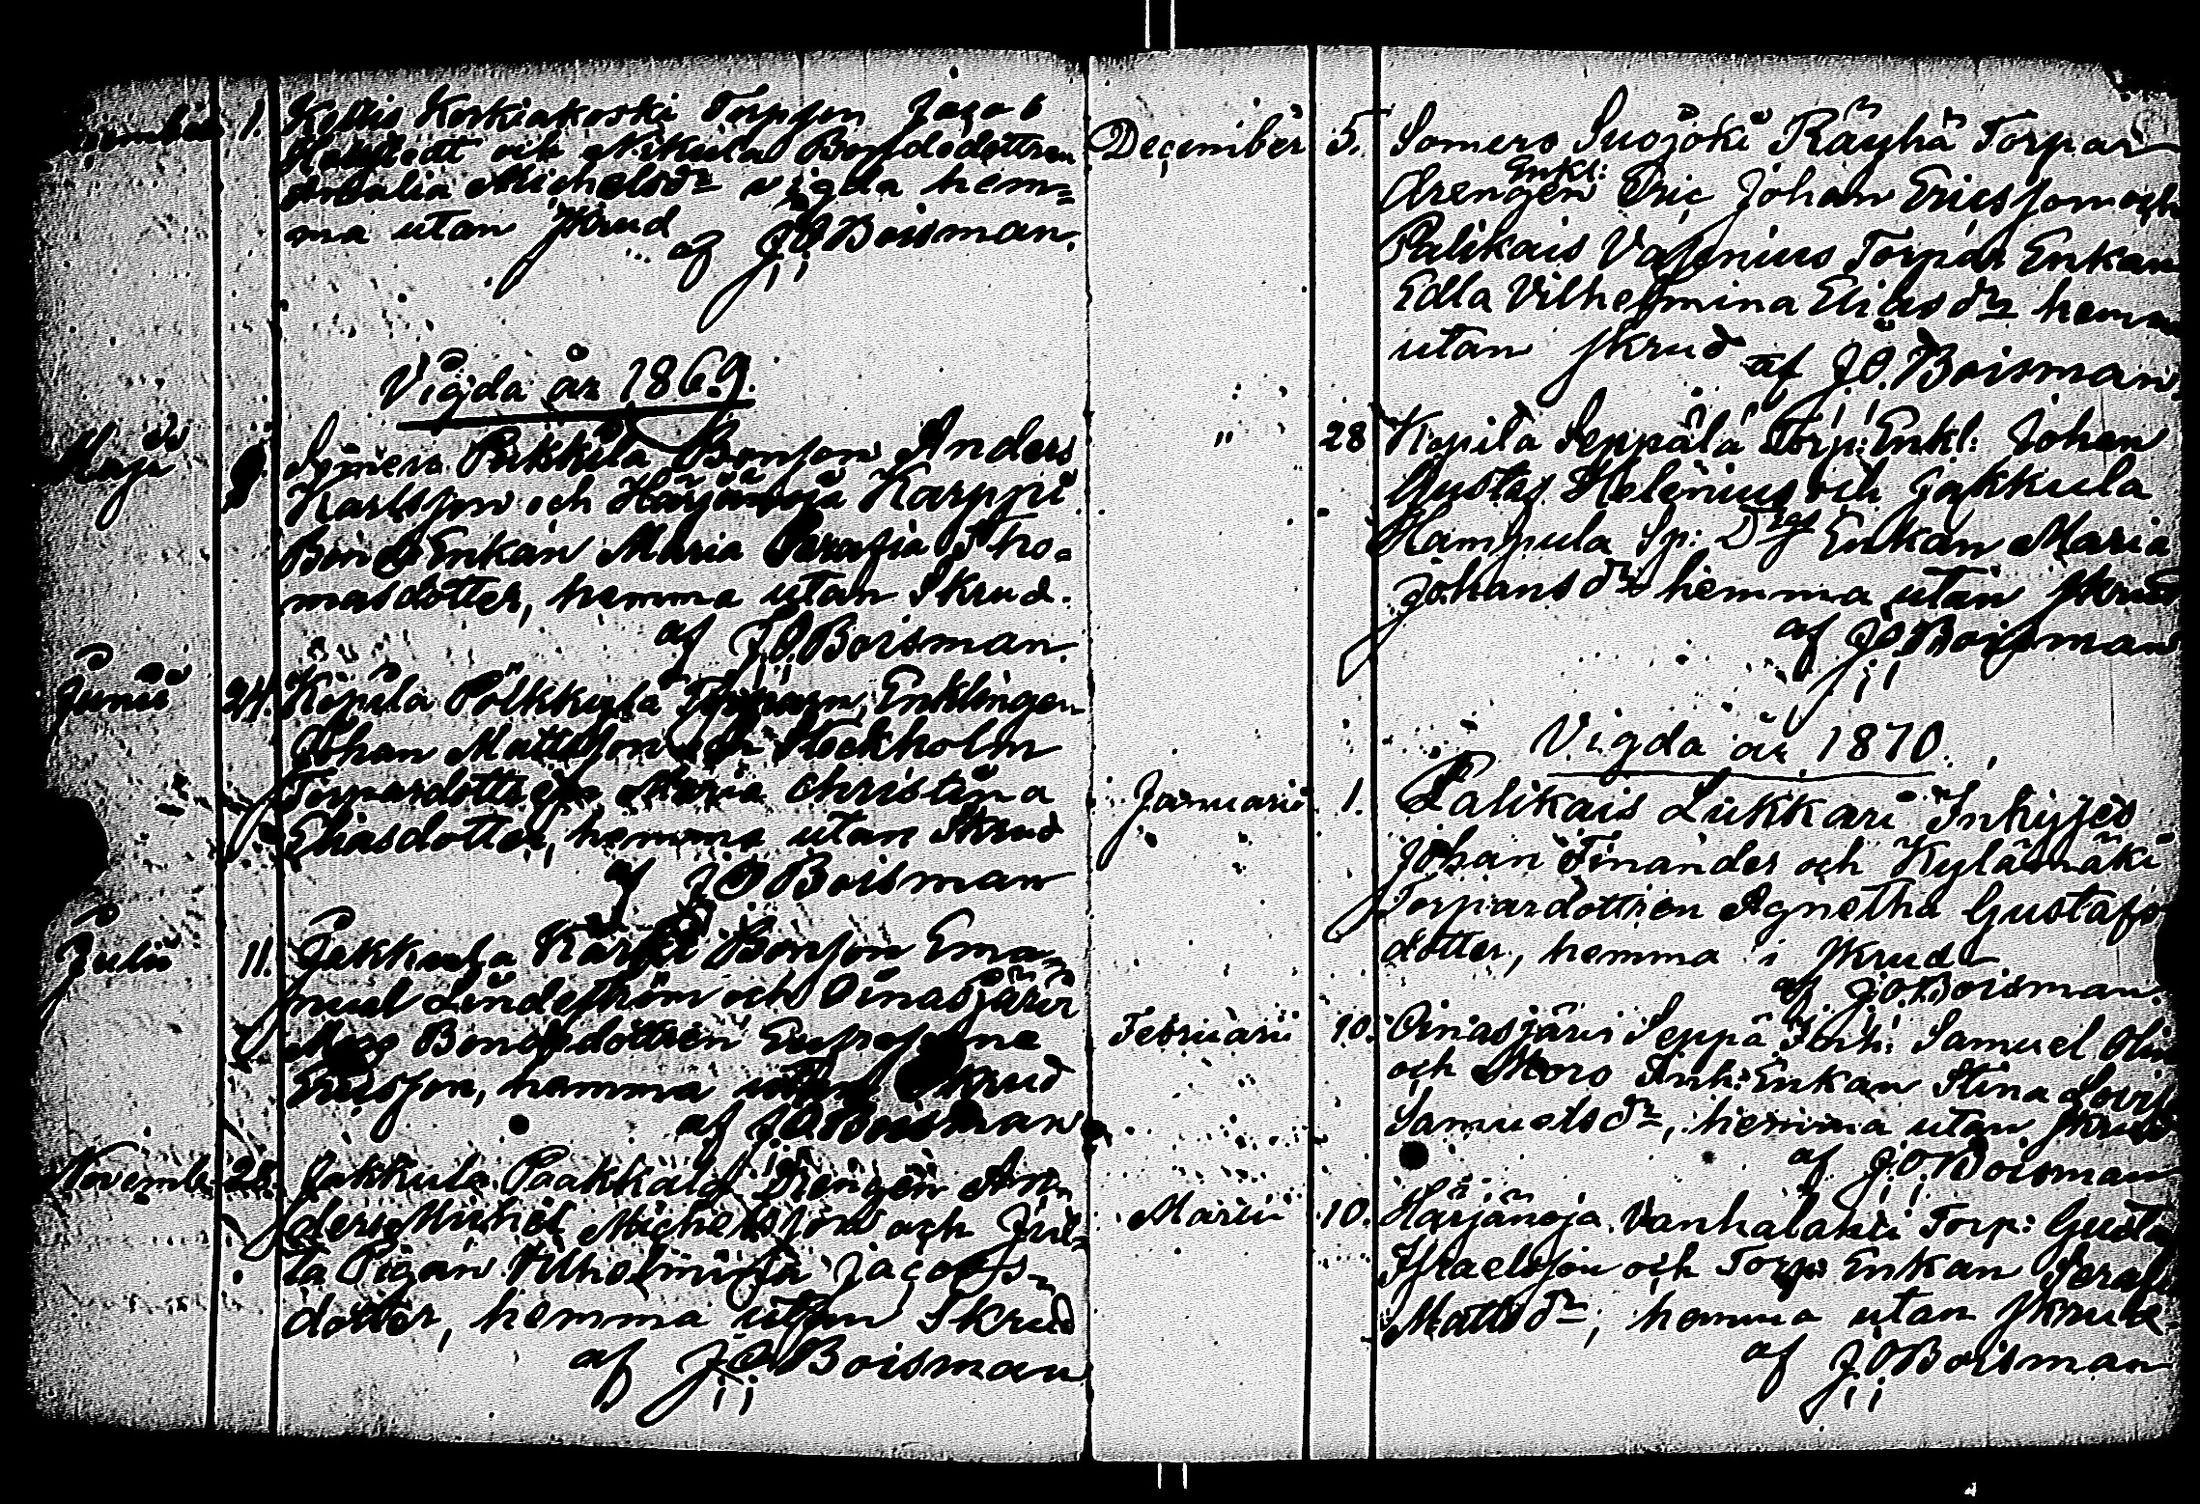 1. Korkiakoski Torpson Jacob
och Nikula Bondedottren
Michelsdr vigda hem=
ma utan skrud
af J.O Boisman.
Vigda år 1869.
Maji Somero Pukkila Bonson Anders
Karlsson och Härjänoja Karppi
Bond Enkan Maria Serafia Tho=
masdotter, hemma utan Skrud.
af J.O Boisman.
Junii 24. Kopila Pölkkylä Enklingen
Johan Mattsson och Stockholm
Torpardottren Maria Christina
Eliasdotter, hemma utan Skrud
af J.O Boisman
Julii 11. Jakkula Bonson Ema=
nuel Lindeström och Oinasjärvi
Bondedottren
Ericsson, hemma utan Skrud
af J.O Boisman
November 28. Jakkula Paakkala Drengen An=
ders Michel Michelsson och
ta Pigan Vilhelmina Jacobs=
dotter, hemma utan Skrud
af J.O Boisman
December 5. Somero Suojoki Räyhä Torpar
Enkl:
Drengen Eric Johan Ericsson och
Palikais Valenius Torpar Enkan
Edla Vilhelmina Eliasdr hemma
utan skrud af J.O. Boisman
" 28 Kopila Seppälä Torp: Enkl: Johan
Gustaf Helenius och Jakkula
Hampula Sp: Enkan Maria
Johansdr hemma utan skrud
af J.O. Boisman
Vigda år 1870.
Januarii 1. Palikais Lukkari Inhyjes
Johan Finander och Kylänmäki
Torpardottren Agnetha Gustafs
dotter, hemma i skrud
af J.O. Boisman.
Februarii 10. Oinasjärvi Seppä Inh: Samuel
och Moro Inh: Enkan Stina
Samuelsdr, hemma utan skrud
af J.O. Boisman
Martii 10. Härjänoja Vanhalakki Torp:
Israelsson och Torp: Enkan
Mattsdr, hemma utan skrud.
af J.O Boisman